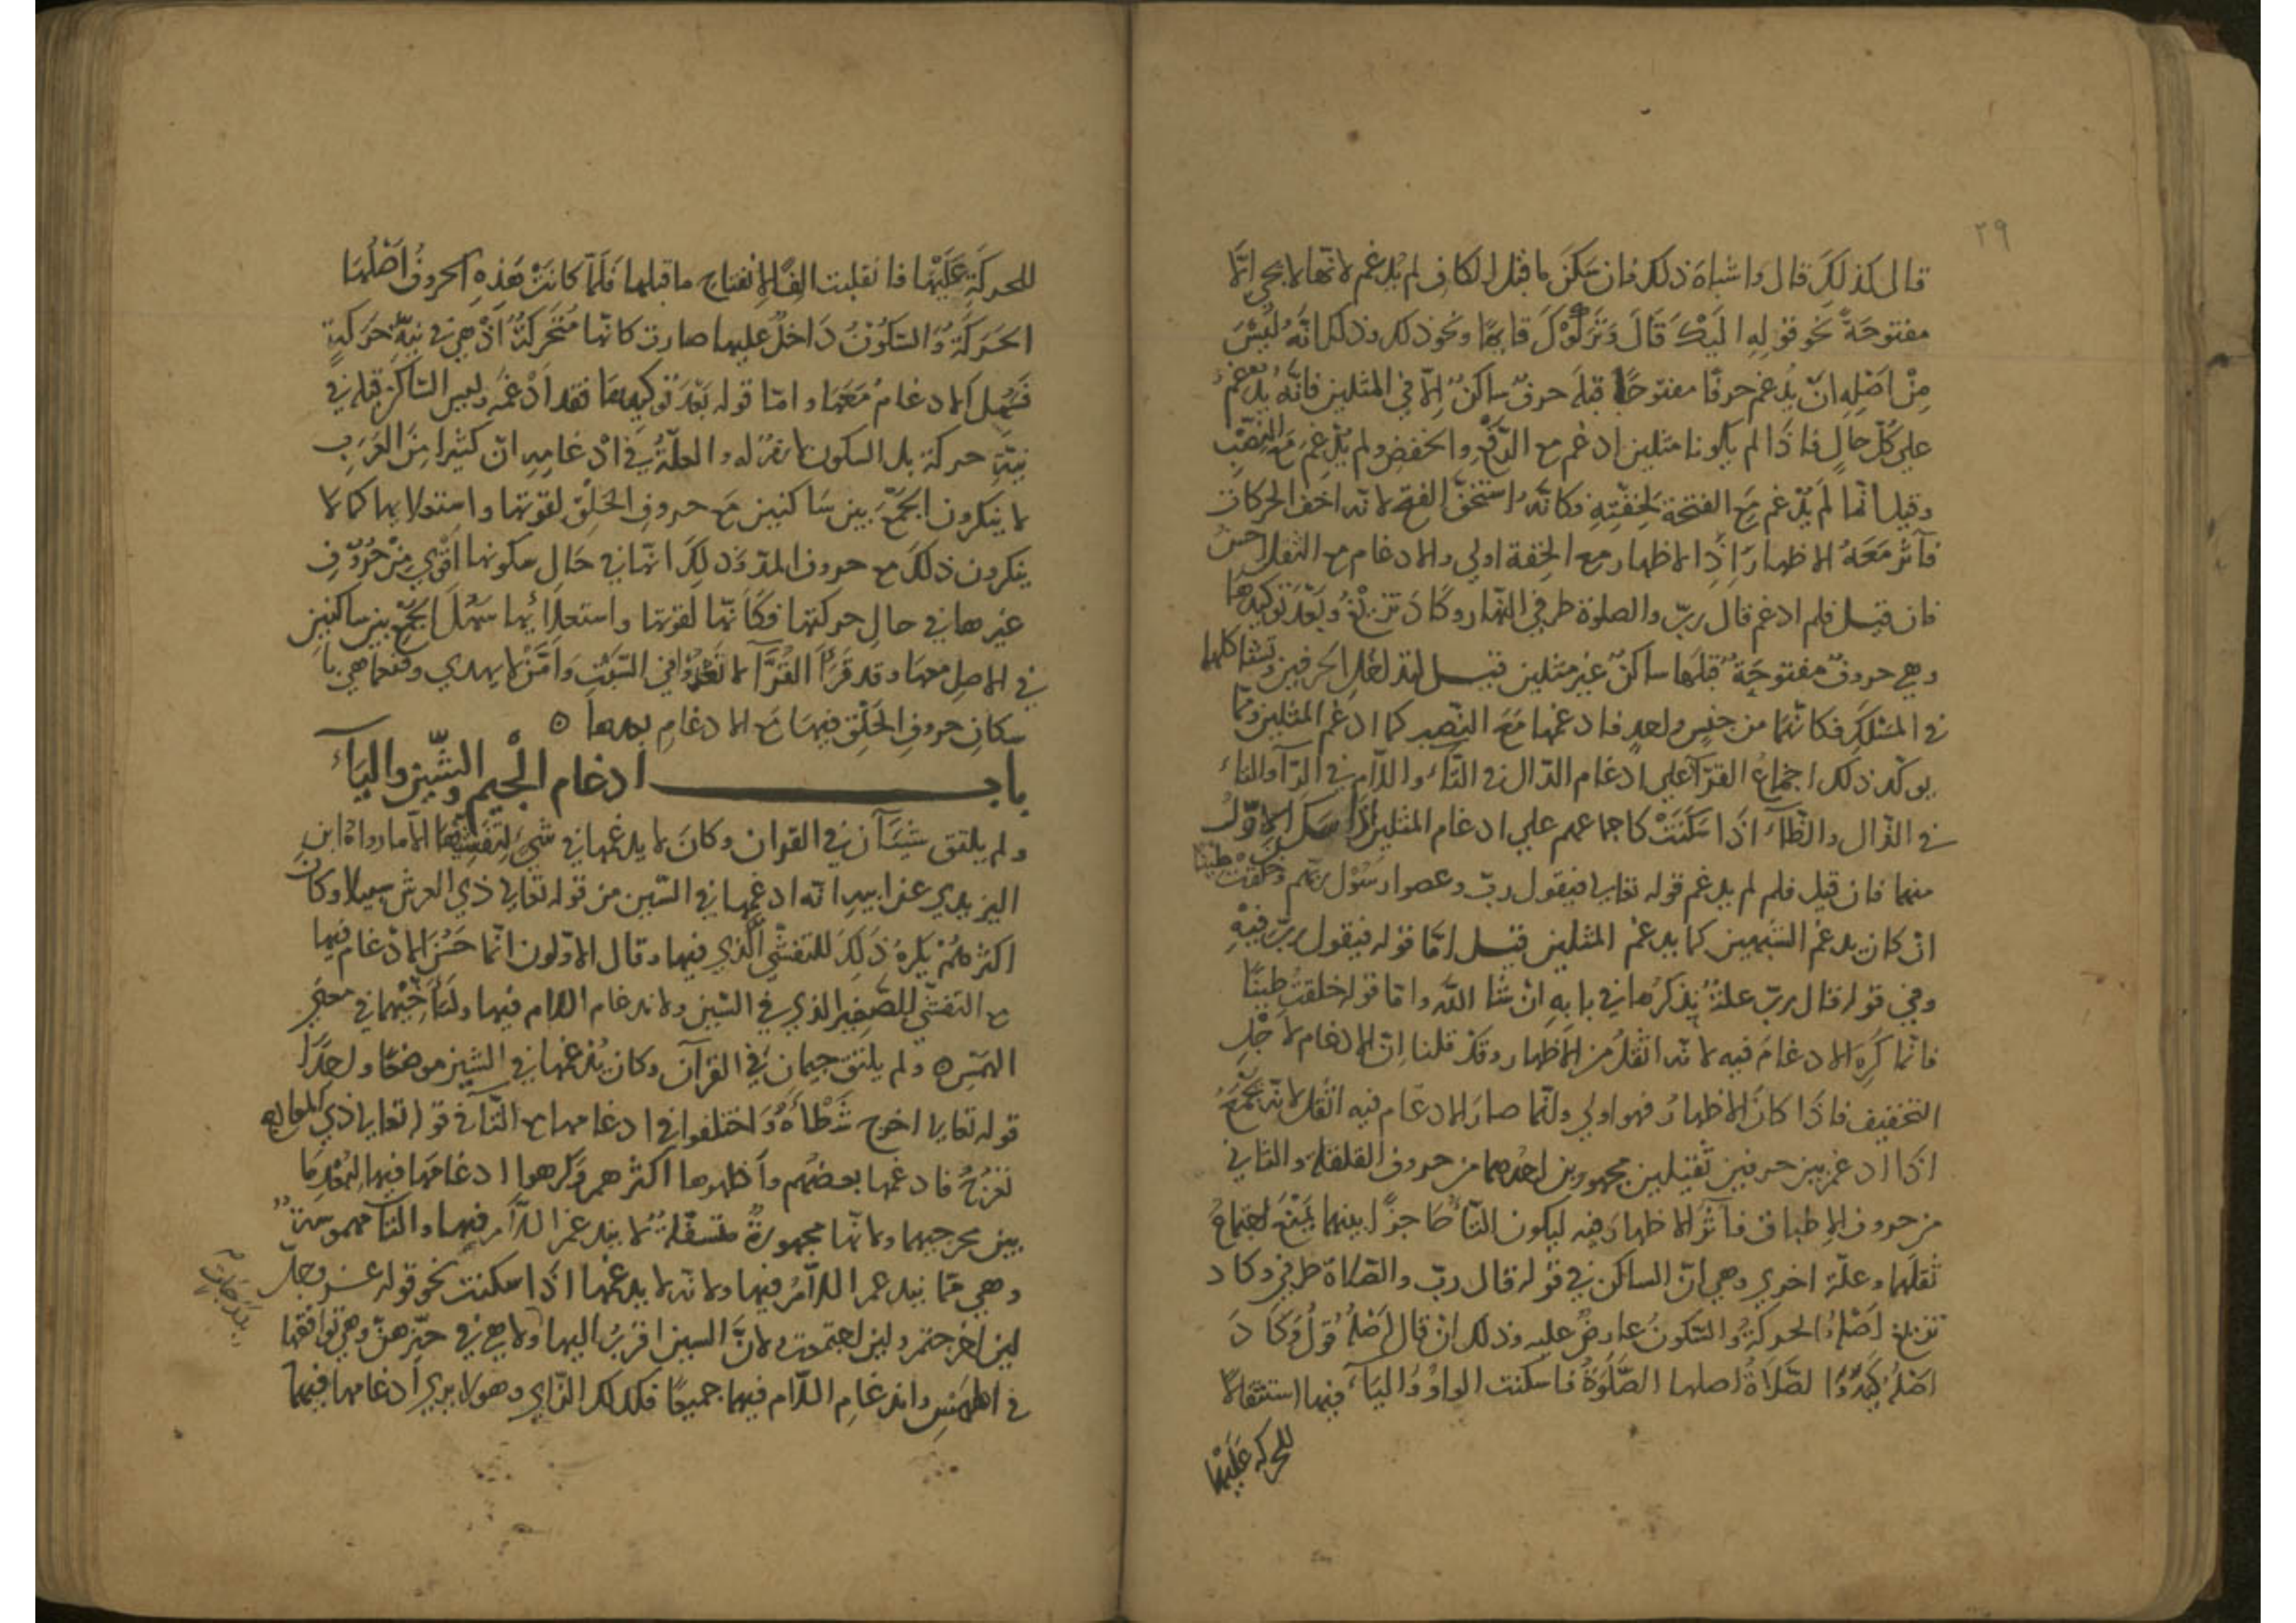 ٢٩
قال كذلكَ قال واشباهَ ذلك فان سكنَ ما قبل الكاف لم يُدغم لانها لا تجي الّا
مفتوحَةً نحو قوله اليكَ قَالَ وَتَرَكُوْكَ قايمًا ونحو ذلك وذلك انّهُ لَيْسَ
مِنْ اَصْلِهِ انْ يُدغم حرفًا مفتوحًا قبلَه حرفٌ ساكنٌ اِلّا في المثلين فانّهُ يُدْغمُ
على كُلّ حالٍ فاذَا لم يكونا مثلين ادغم مع الرَّفْعِ والخفضِ ولم يُدْغِم مَعَ النصْبِ
وقيل انّما لَمْ يُدْغم مَعَ الفتحة لخِفّتِهِ فكانّهُ استخفّ الفتح لانه اخف الحركات
فآثَرَ مَعَهُ الاظهارَ اِذِ الاظهار مع الخِفة اولي والادغام مع الثقل احسن
فان قيل فلم ادغم قال ربّ والصلوة طرفي النهار وكادَ تزيغُ وَبَعْدَ تَوكيدها
وهي حروفٌ مفتوحَةٌ قبلَها ساكنٌ غير مثلين قيل لتداخل الحرفين وتشاكلهما
في المَسْلَكِ فكانهُمَا من جنسٍ واحدٍ فادغمها مَعَ النّصب كما ادغم المثلين وممّا
يوكّد ذلك اجماعُ القرّآ علي ادغام الدّال في التآءِ واللّام في الرّآ والتاء
في الدّال والطّآء اذَا سَكَنَتْ كاجماعهم علي ادغام المثلين اذا سكن الاوّلُ
منهما فان قيل فلم لم يدغم قوله تعالي فيقول ربّ وعصوا رَسُوْل ربّهم وخلقت طينًا
ان كان يدغم الشبهين كما يدغم المثلين قيل امّا قوله فيقول ربّ فَفيْهِ
وفي قوله قال ربّ علةٌ نذكرُها في بابهِ انْ شا اللّه وامّا قوله خلقتَ طينًا
فانّما كَرِهَ الادغامَ فيه لانّه اثقلُ من الاظهار وقَدْ قلنا اِنّ الادغام لاَجْلِ
التخفيف فاذا كانَ الاظهارُ فهو اولي وانّما صارَ الادغام فيه اثقل لانّه يجْمَعُ
اذَا ادغم بين حرفين ثقيلين مجهورين احدهما من حروف القلقلة والثاني
من حروف الاِطباق فآثَر الاظهارَ فيه ليكون التآءُ حَاجزًا بينهما يمْنَعُ اجتماعُ
ثقلهما وعلّة اخري وهي انّ الساكن في قوله قال ربّ والصّلاة طرفي وكاد
تزيغ اَصْلُهُ الحركةُ والسّكونُ عارِضٌ عليه وذلك انّ قال اَصْلُهُ قولَ وَكادَ
اصْلُهُ كَيِدَ وَالصّلَاةُ اصلها الصَّلَوَةُ فاسكنت الواوُ وُالياءَ فيها استثقالاً
للحركة عَلَيْهَا
للحركَةِ عَلَيْهَا فانقلبت الِفًا لِانفتاح ما قبلها فَلَمّا كانَتْ هَذِهِ الحروفُ اَصْلُهَا
الحَرَكَةُ وَالسّكُوْنُ دَاخلٌ عليها صارت كانّها مُتَحَرِّكَةٌ اذْ هي في نيَّةِ حَرَكةٍ
فَسَهُلَ الادغامُ مَعَهَا وامّا قوله بَعْدَ تَوكيدها فقد اَدْغَمَهُ وليس السّاكن قبله في
نيَّةِ حركة بل السكون لازمٌ له والعلّةُ في ادْغامِهِ انّ كثيرا مِنَ العَرَبِ
لا ينكرون الجَمْعَ بين سَاكنين مع حروفِ الحَلْقِ لقوتها واستعلائها كما لا
ينكرون ذلكَ مع حروف المدّ وَذلِكَ انّها في حَالِ سكونها اَقْوي مِنْ حُرُوْفِ
غيرها في حالِ حركتها فكَانّها لقوّتها واستعلائِها سَهُلَ الجَمْع بين ساكنين
في الاصل معها وقد قَرَأَ القُرَّآ لا تَعْدُّوا في السّبْتِ وَاَمَّنْ لا يهدي ونعما هي با
سكانِ حروفِ الحَلْقِ فيها مَع الادغامِ بعدها ٥
باب ادغام الْجيم والشّين واليآء
ولم يلتق شيْنَان في القران وكانَ لا يدغمها في شيْءٍ لِتَفَشّيْهَا الّا ما رواهُ ابن
اليزيدي عن ابيهِ انّه ادغمها في السّين من قوله تعالي ذي العرش سبيلا وكان
اكثرهُمْ يَكْرهُ ذَلِكَ للتفشّي الّذي فيها وقال الاوّلون انّما حَسُنَ الادْغام فيها
مع التفشّي للصّفير الذي في السّين ولاندغام اللام فيها ولتآخيْهما في معني
الهَمْسِ ٥ ولم يلتق جيمان في القرآن وكان يُدْغمها في الشين موضعًا واحدًا
قوله تعالي اخرج شَطْأَهُ وَاختلفوا في ادغامها مع التّآ في قوله تعالي ذي المعارج
تعرُجُ فادغمها بعضهم وأظهرها اكثرهم وَكرهوا ادغامَها فيها لبُعْدِ مَا
بين مخرجيهما ولانّها مجهورةٌ متسفّلةٌ لا يندغم اللّام فيها والتآ مهموسةٌ
وهي ممّا يندغم اللاّمُ فيها ولانّه لا يدغمها اذَا سكنت نحو قوله عز وجل
لين اخرجتم ولين اجتمعت ولانَّ السين اقربُ اليها ولا هي في حيّزهنّ وهي توافقها
في الهَمْسِ واندغام اللّام فيها جميعًا فكذلك الزّاي وهو لا يري اَدغامها فيها